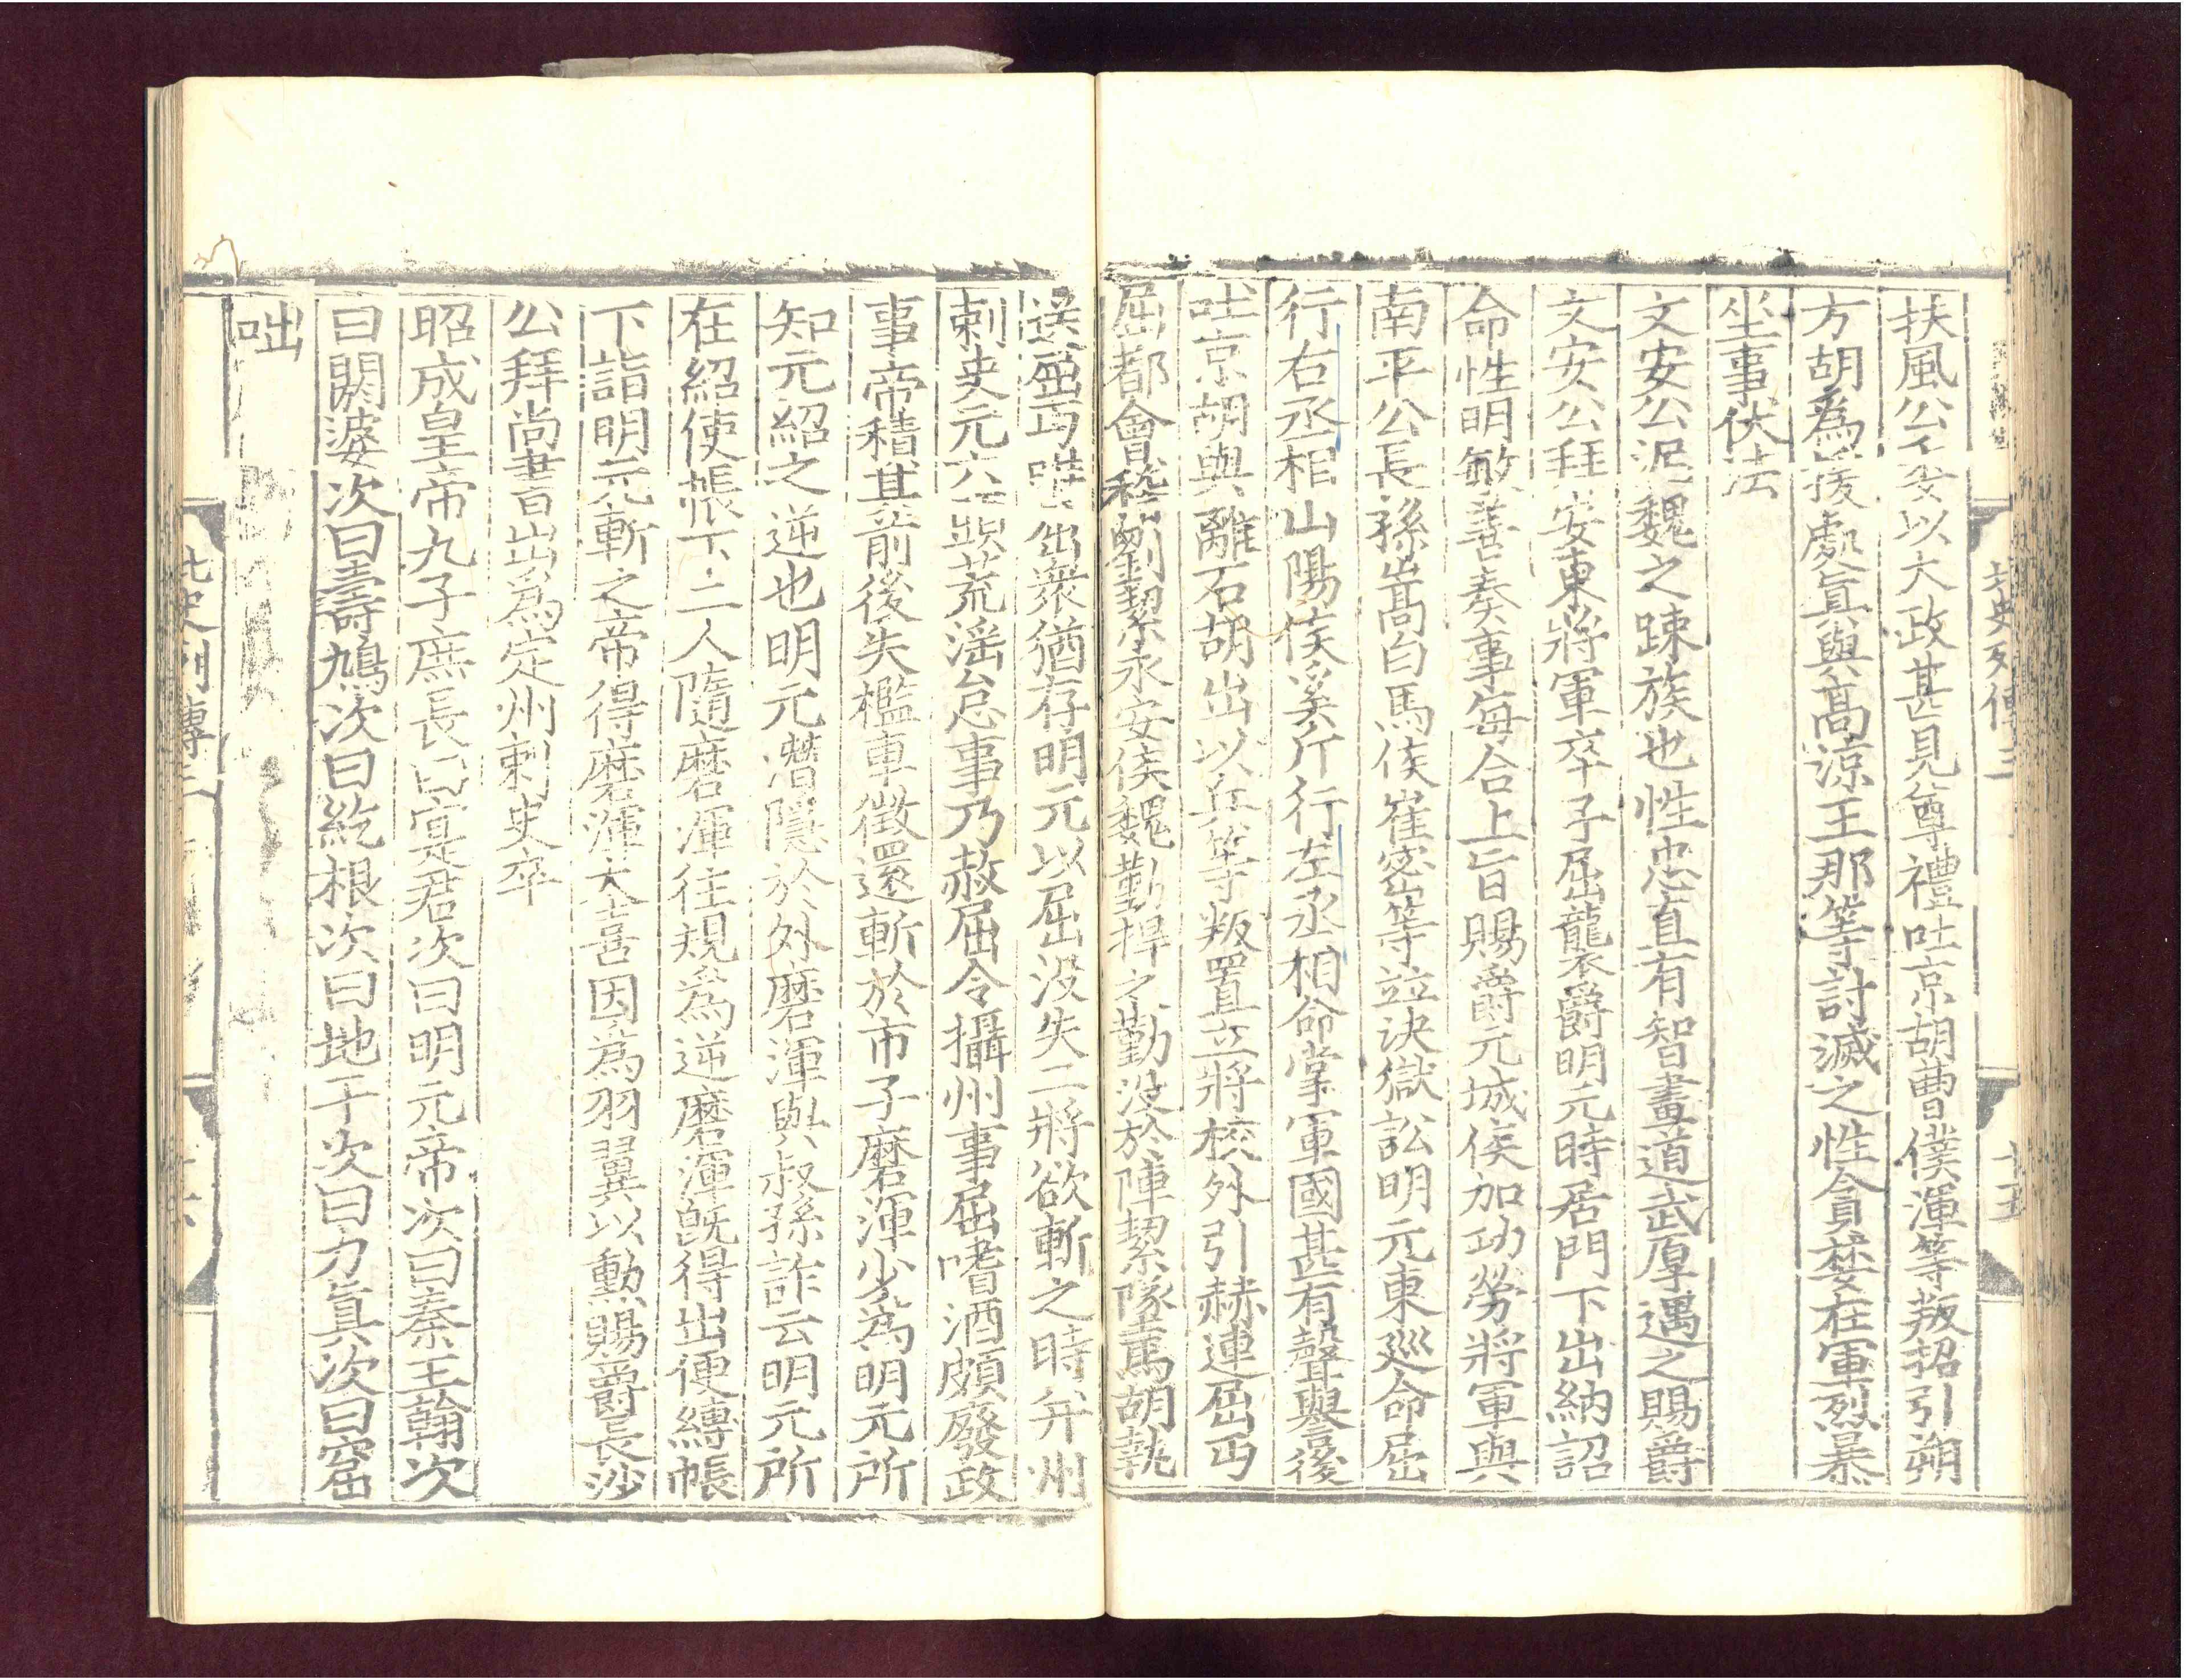 北史列傳三
十五
扶風公不㚟以大政甚見尊禮吐京胡曹僕渾等叛招引朔
方胡爲援處眞與高涼王那等討滅之性貪婪在軍烈暴
坐事伏法
文安公泥魏之踈族也性忠直有智畫道武厚遇之賜爵
文安公拜安東將軍卒子屈襲爵明元時居門下出納詔
命性明敏善奏事每合上旨賜爵元城侯加功勞將軍與
南平公長孫嵩白馬侯崔宻等竝决獄訟明元東巡命屈
行右丞相山陽侯奚斤行左丞相命掌軍國甚有聲譽後
吐京胡與離石胡出以兵等叛置立將校外引赫連屈丐
屈都會稽劉絜永安侯魏勤捍之勤没於陣絜墜馬胡執
送屈丐唯屈衆猶存明元以屈没失二將欲斬之時并州
剌史元六頭荒淫怠事乃赦屈令攝州事屈嗜酒頗廢政
事帝積其前後失檻車徵還斬於市子磨渾少爲明元所
知元紹之逆也明元潛隱於外磨渾與叔孫詐云明元所
在紹使帳下二人隨磨渾往規爲逆磨渾旣得出便縛帳
下詣明元斬之帝得磨渾大喜因爲羽翼以勳賜爵長沙
公拜尚書出爲定州剌史卒
昭成皇帝九子庶長曰寔君次曰明元帝次曰秦王翰次
曰閼婆次曰壽鳩次曰紇根次曰地干次曰力眞次曰窟
咄
北史列傳三
十六